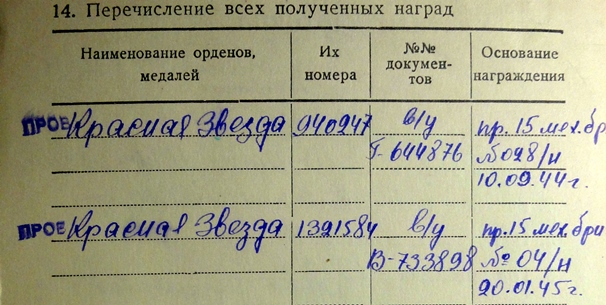 14. Перечисление всех полученных наград
Наименование орденов, медалей
Их номера
№№ докумен-тов
Основание награждения
ПРОВ Красная Звезда 940247 в/у пр. 15 мех. бр
Г-644876 №028/н
10.09.44 г.
ПРОВ Красная Звезда 1391584 в/у пр. 15 мех. бри
В-733898 № 04/н
20.01.45 г.